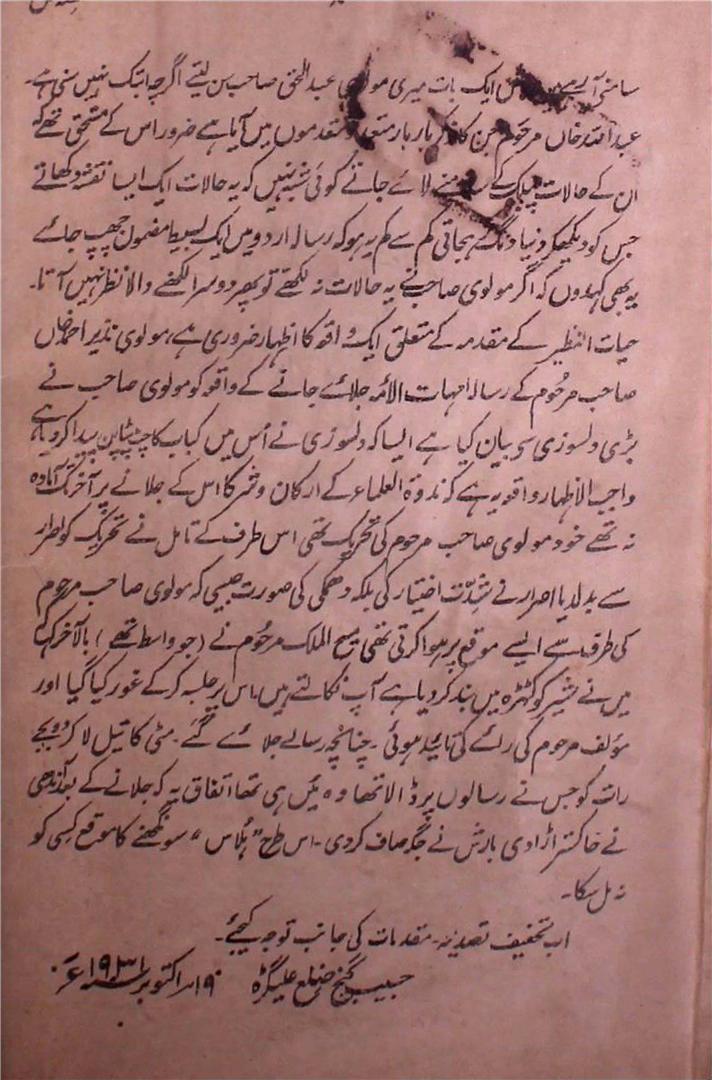 سامنے آ رہے ایک بات میری مولوی عبدالحق صاحب سن لیتے اگرچہ ابتک نہیں سنی ہے۔
عبداللہ خاں مرحوم جن کا ذکر بار بار متعدد مقدموں میں آیا ہے ضرور اس کے مستحق تھے کہ
ان کے حالات پبلک کے سامنے لائے جاتے کوئی شبہ نہیں کہ یہ حالات ایک ایسا نقشہ دکھاتے
جس کو دیکھکر دنیا دنگ رہجاتی کم سے کم یہ ہو کہ رسالہ اردو میں ایک بسیط مضمون چھپ جائے
یہ بھی کہدوں کہ اگر مولوی صاحب نے یہ حالات نہ لکھے تو پھر دوسرا لکھنے والا نظر نہیں آتا۔
حیات النظیر کے مقدمہ کے متعلق ایک واقعہ کا اظہار ضروری ہے، مولوی نذیر احمد خاں
صاحب مرحوم کے رسالہ امہات الائمہ جلائے جانے کے واقعہ کو مولوی صاحب نے
بڑی دلسوزی سے بیان کیا ہے ایسا کہ دلسوزی نے اس میں کباب کا چٹپٹا پن پیدا کر دیا ہے
واجب الاظہار واقعہ یہ ہے کہ ندوۃ العلماء کے ارکان و شرکا اس کے جلانے پر آخر تک آمادہ
نہ تھے خود مولوی صاحب مرحوم کی تحریک تھی اس طرف کے تامل نے تحریک کو اصرار
سے بدلدیا اصرار نے شدّت اختیار کی بلکہ دھمکی کی صورت جیسی کہ مولوی صاحب مرحوم
کی طرف سے ایسے موقع پر ہوا کرتی تھی مسیح الملک مرحوم نے (جو واسطہ تھے) بالآخر کہا کہ
میں نے شیر کو کٹہرہ میں بند کر دیا ہے آپ نکالتے ہیں، اس پر جلسہ کر کے غور کیا گیا اور
مؤلف مرحوم کی رائے کی تائید ہوئی۔ چنانچہ رسالے جلائے گئے۔ مٹی کا تیل لا کر دو بجے
رات کو جس نے رسالوں پر ڈالا تھا وہ میں ہی تھا اتفاق یہ کہ جلانے کے بعد آندھی
نے خاکستر اڑا دی بارش نے جگہ صاف کر دی۔ اس طرح "ہُلاس" سونگھنے کا موقع کسی کو
نہ مل سکا۔
اب تخفیف تصدیعہ۔ مقدمات کی جانب توجہ کیجئے۔
حبیب گنج ضلع علیگڑہ ۱۹ ؍ اکتوبر ۱۹۳۱ء